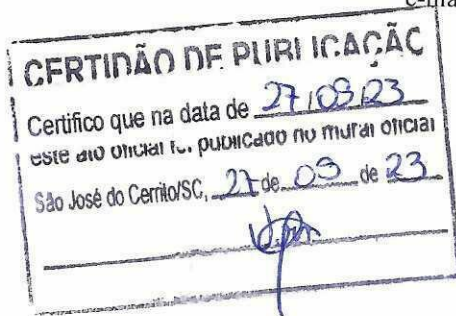 e-ma
CERTIDÃO DE PUBLICAÇÃO
Certifico que na data de 27/09/23
este ato oficial foi publicado no mural oficial
São José do Cerrito/SC, 27 de 09 de 23